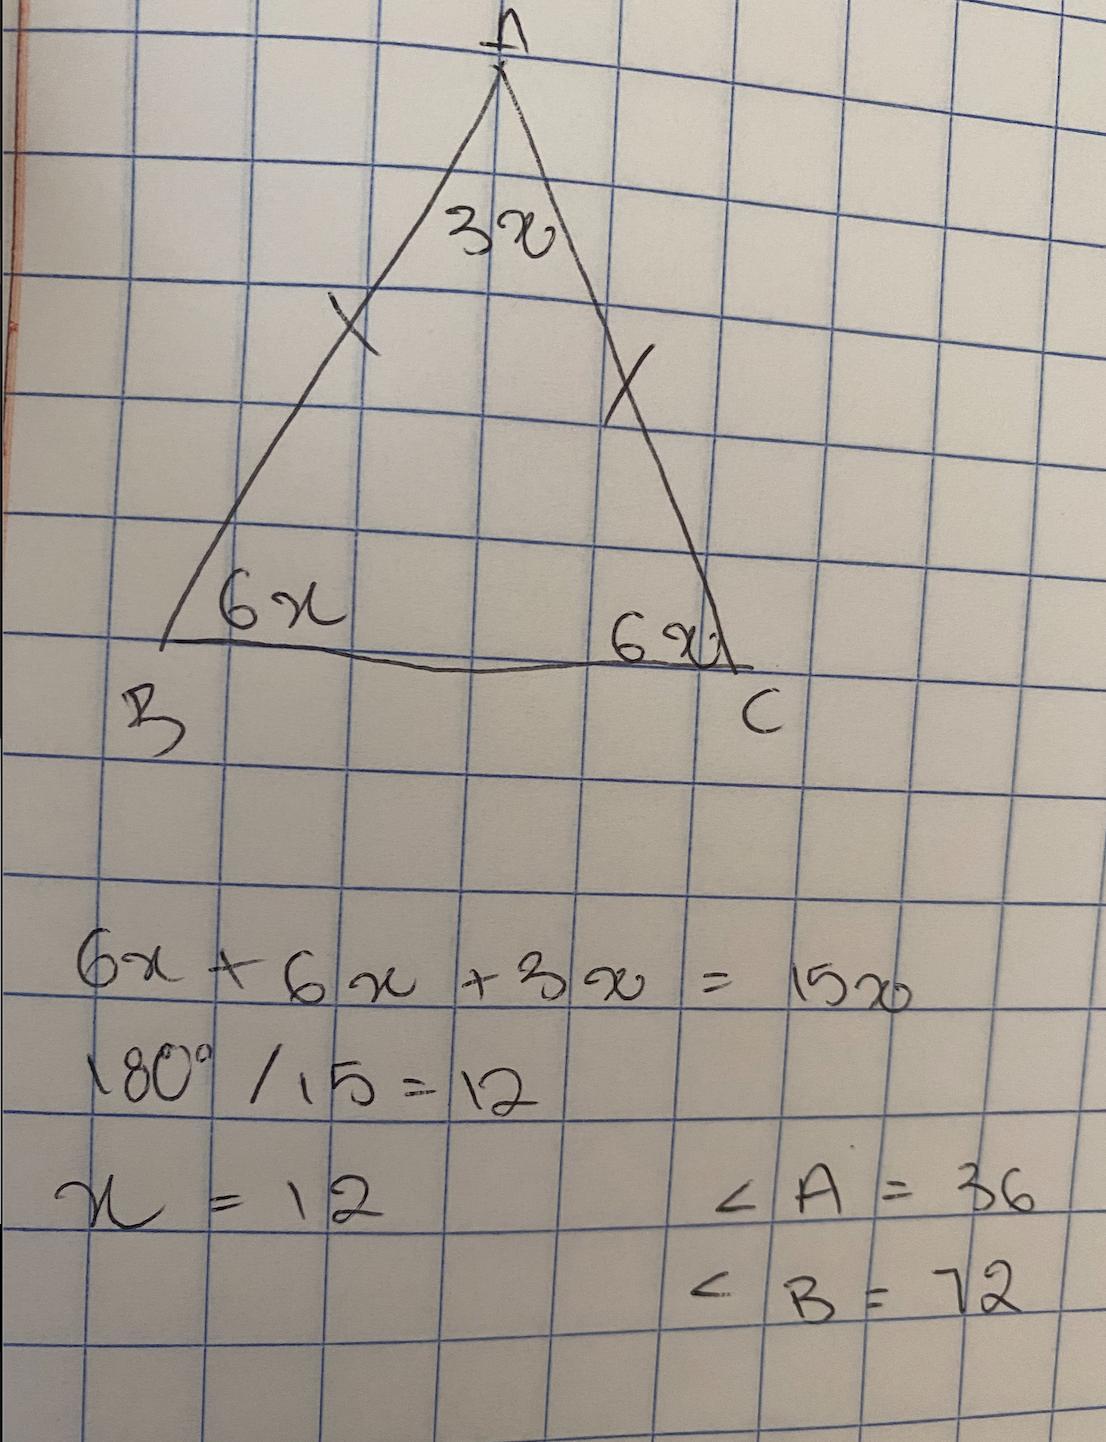 A
3x
6x
6x
B
C
6x + 6x + 3x = 15x
180° / 15 = 12
x = 12
< A = 36
< B = 72